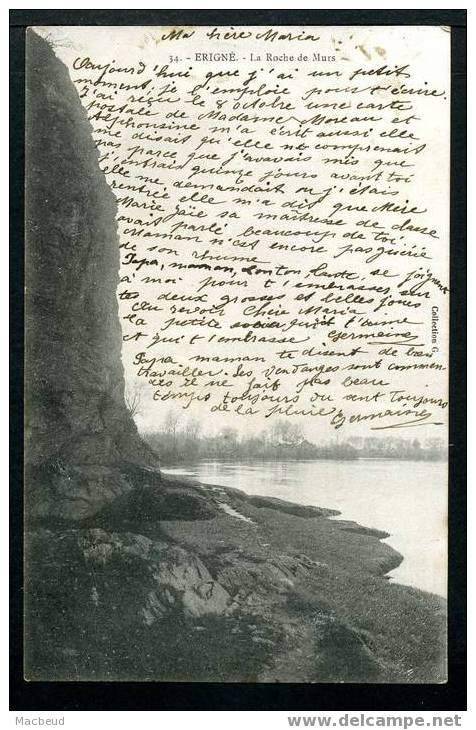 Ma chère Maria
34. - ERIGNÉ. - La Roche de Murs
Aujourd'hui que j'ai un petit
moment, je l'emploie pour t'écrire.
J'ai reçu le 8 octobre une carte
postale de Madame Moreau et
Alphonsine m'a écrit aussi elle
me disait qu'elle ne comprenait
pas parce que j'avais mis que
j'entrais quinze jours avant toi
elle me demandait où j'étais
rentrée elle m'a dit que Mère
Marie sa maîtresse de classe
avait parlé beaucoup de toi
Maman n'est encore pas guérie
de son rhume
Papa, maman, tonton se joignent
à moi pour t'embrasser sur
tes deux grosses et belles joues
Au revoir Chère Maria
Ta petite qui t'aime
et qui t'embrasse Germaine
Papa maman te disent de bien
travailler. Les vendanges sont commen-
cées il ne fait pas beau
temps toujours du vent toujours
de la pluie Germaine
Collection G.
Macbeud
www.delcampe.net